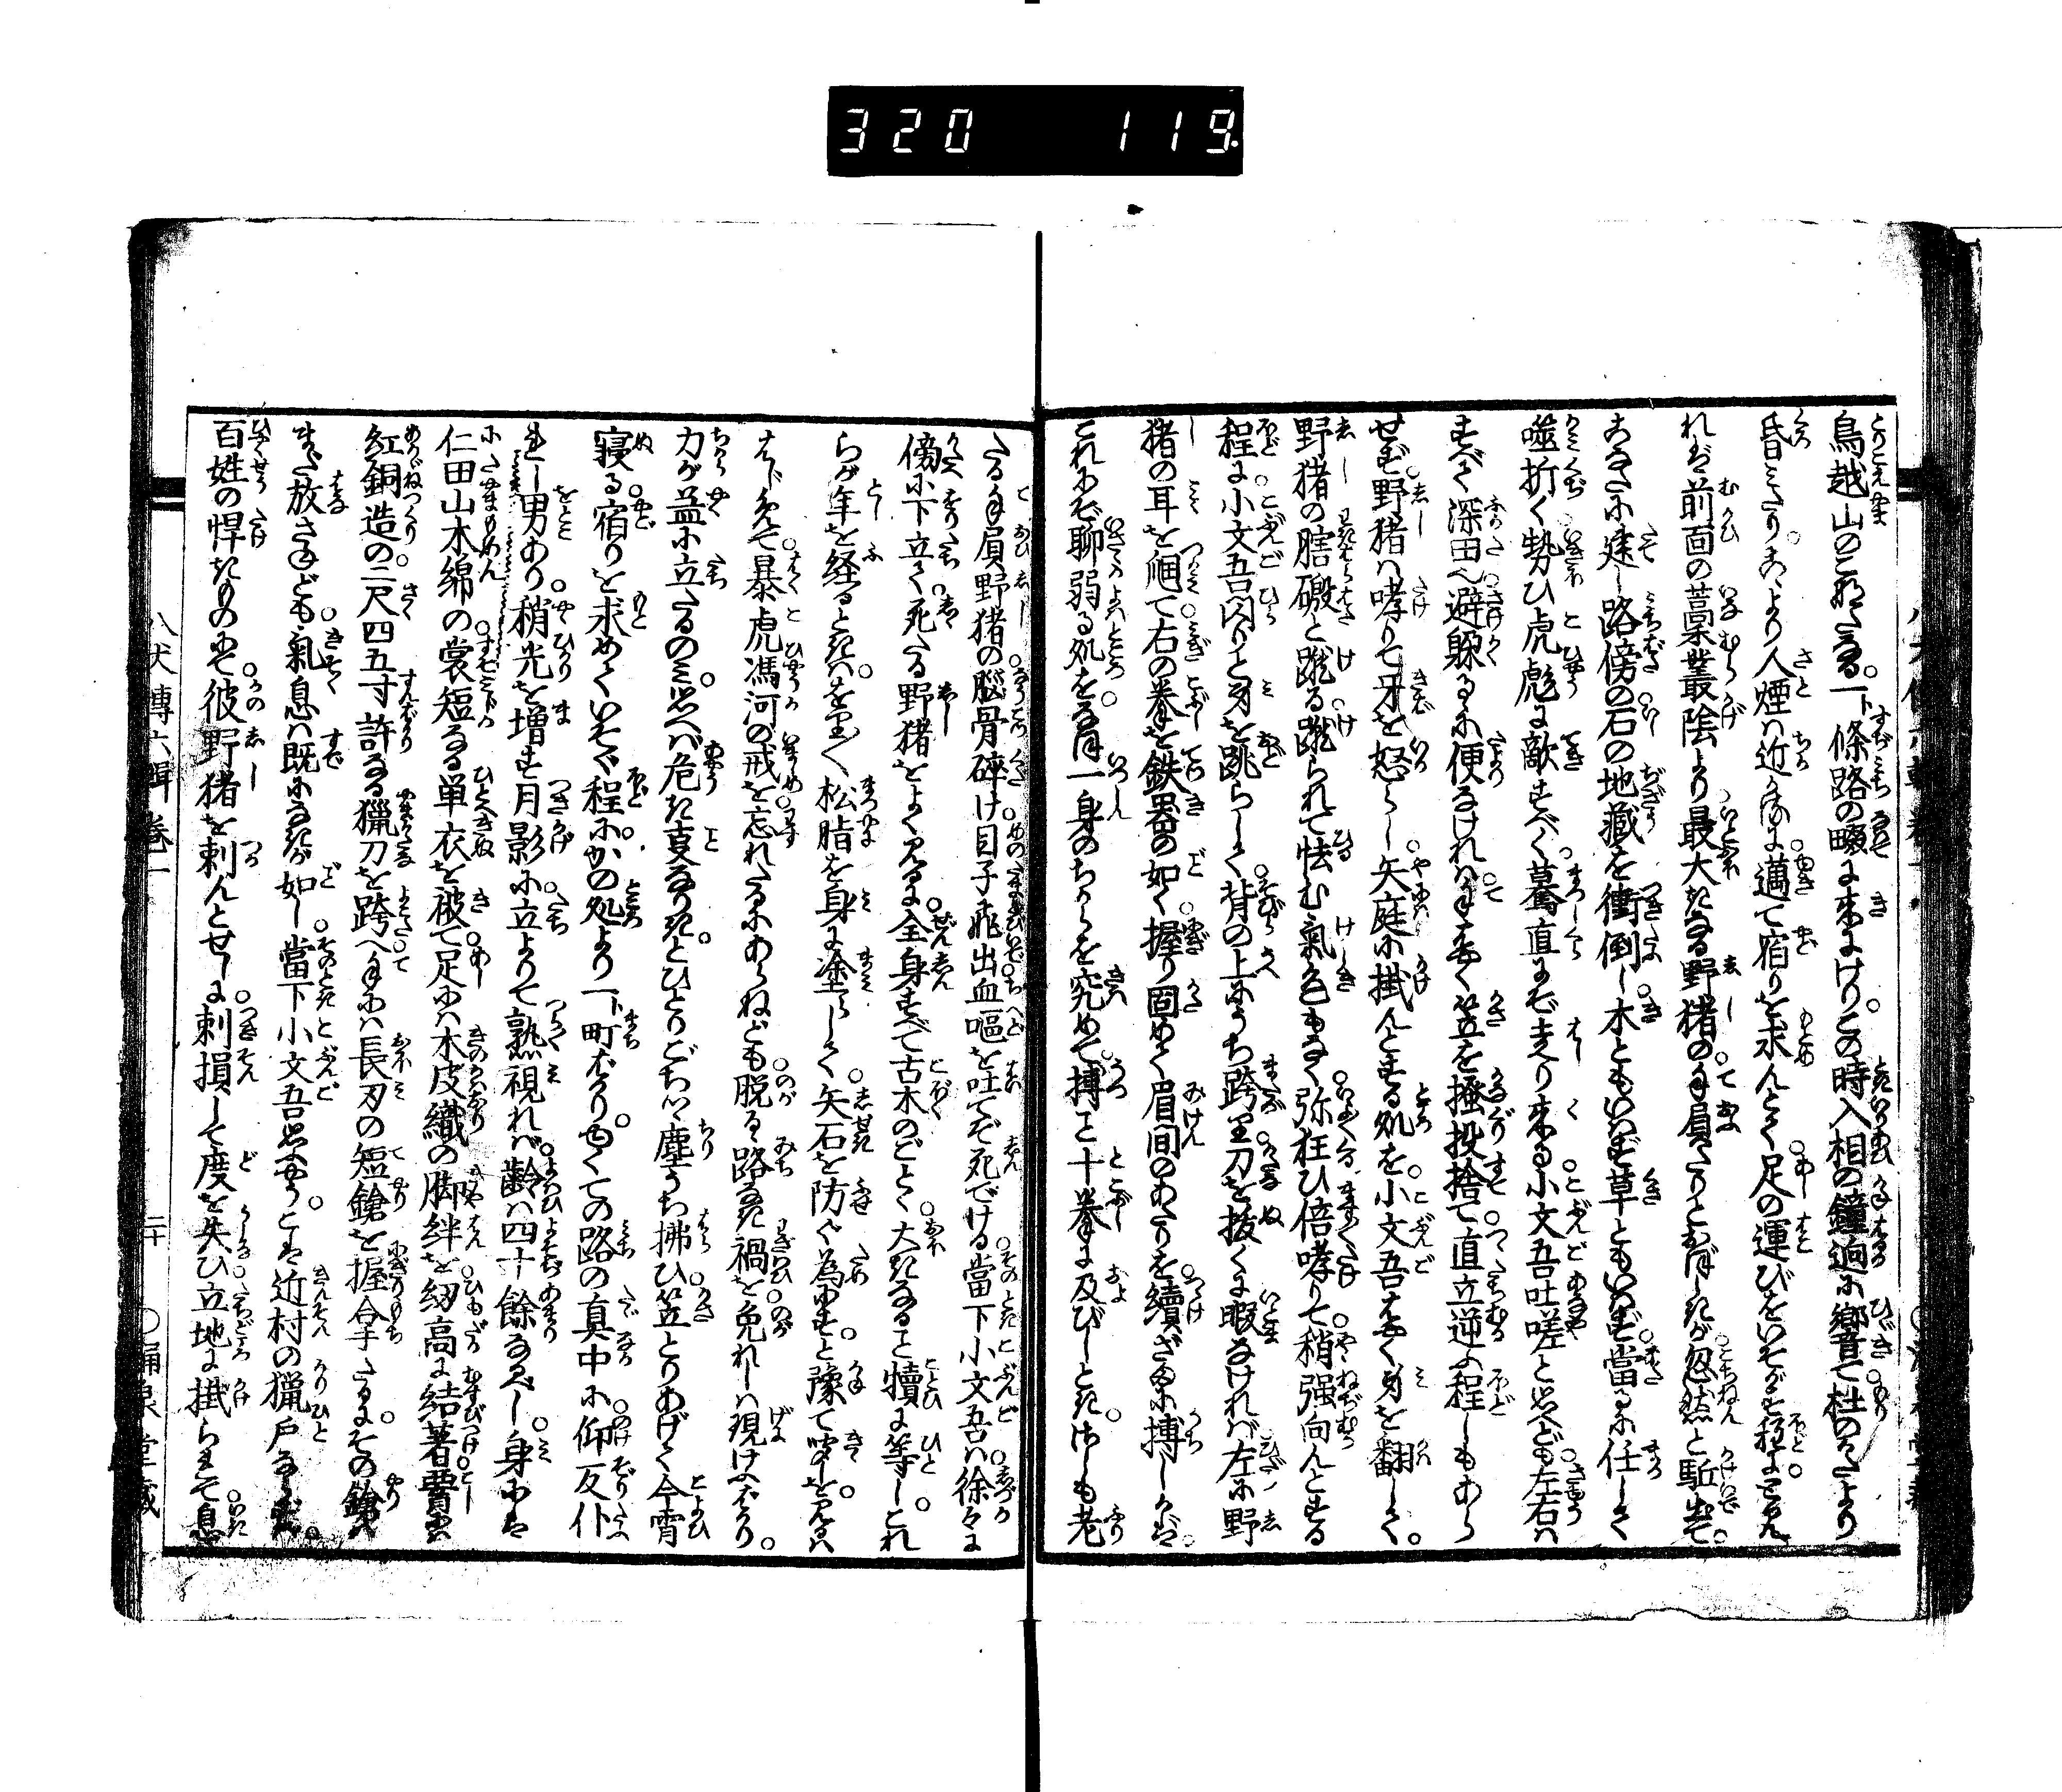 320 119
鳥越山のこなたなる。一條路の畷に来にけり。この時入相の鐘迥に響て杜のこなたより
昏みたり。こゝより人煙は近からぬに。邁て宿りを求んとて。足の運びをいそがす程に
れば前面の藁叢陰より最大きなる野猪の。手負たりとおぼしきが忽然と駈出て。
あなたに建し路傍の石の地藏を衝倒し。木ともいはず草ともいはず。當るに任して
噬折く勢ひ虎彪に敵すべく。驀直にぞ走り来る。小文吾吐嗟と思へども。左右は
すべて深田にて。避躱るに便なければ。手ばやく笠を掻投捨て。直立逆ふ程しもあら
せず。野猪は哮りて牙を怒らし。矢庭に掛んとする処を。小文吾はやく身を翻して。
野猪の䐉磤と蹴る。蹴られて怯む氣色もなく。弥狂ひ倍哮りて。稍强向んとする
程に。小文吾閃りと身を跳らして。背の上にうち跨り。刀を抜くに暇なければ。左に野
猪の耳を䫔て。右の拳を鉄器の如く。握り固めて眉間のあたりを。續ざまに搏しかば。
これにぞ聊弱る処を。なほ一身のちからを究めて。搏こと十拳に及びしとき。さしも老
たる手負野猪の。脳骨碎け目子飛出。血嘔を吐てぞ死でける。當下小文吾は。徐々に
傍に下立て。死たる野猪をよく見るに。全身すべて古木のごとく。大きなること犢に等し。これ
らが年を経るときは。をり〳〵松脂を身に塗らして。矢石を防ぐ為にすと。豫て聞しを見るは
はじめて。暴虎馮河の戒を。忘れたるにあらねども。脱るゝ路なき禍を。免れしは現けふばかり。
力が益に立たるのみ。思へば危き事なりきと。ひとりごちつゝ塵うち拂ひ。笠とりあげて今宵
寝る。宿りを求めていそぐ程に。かの処より一町ばかり。ゆくての路の真中に。仰反仆
れし男あり。稍光を増す月影に。立よりて熟視れば。齢は四十餘なるべし。身には
仁田山木綿の裳短なる単衣を被て。足には木皮織の脚絆を。紐高に結著。腰には
紅銅造の。二尺四五寸許なる獵刀を跨へ。手には長刃の短鎗を。握拿たるに。その鎗は
まだ放さねども。氣息は既になきが如し。當下小文吾思ふやう。こは近村の獵戶ならずば。
百姓の悍きものにて。彼野猪を刺んとせしに。刺損して度を失ひ。立地に掛られて。息
八犬傳六輯巻一
二十
涌泉堂藏